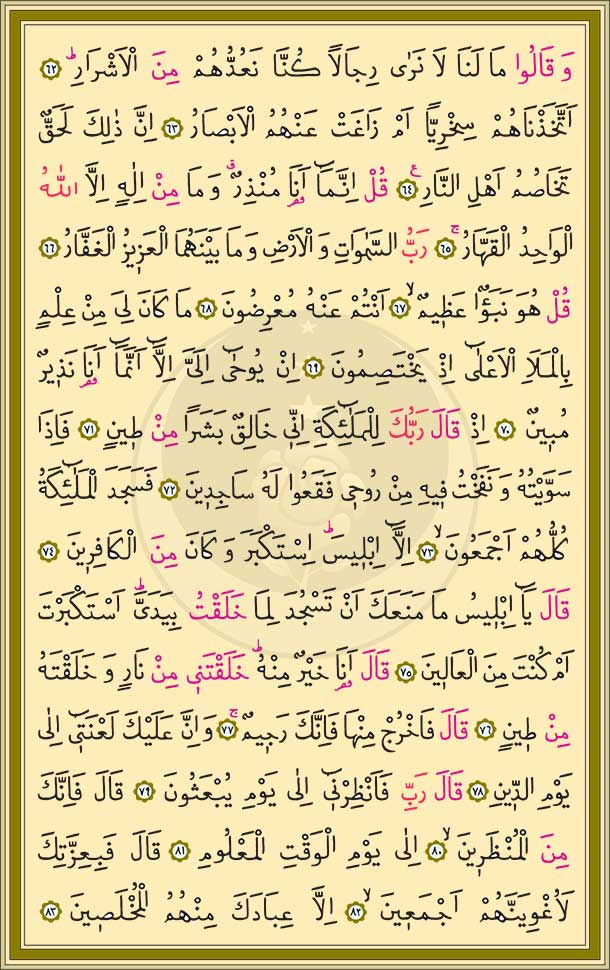 وَقَالُوا مَا لَنَا لَا نَرٰى رِجَالًا كُنَّا نَعُدُّهُمْ مِنَ الْاَشْرَارِۜ ﴿٦٢﴾
اَتَّخَذْنَاهُمْ سِخْرِيًّا اَمْ زَاغَتْ عَنْهُمُ الْاَبْصَارُ ﴿٦٣﴾ اِنَّ ذٰلِكَ لَحَقٌّ
تَخَاصُمُ اَهْلِ النَّارِ۟ ﴿٦٤﴾ قُلْ اِنَّمَٓا اَنَا۬ مُنْذِرٌۗ وَمَا مِنْ اِلٰهٍ اِلَّا اللّٰهُ
الْوَاحِدُ الْقَهَّارُۚ ﴿٦٥﴾ رَبُّ السَّمٰوَاتِ وَالْاَرْضِ وَمَا بَيْنَهُمَا الْعَز۪يزُ الْغَفَّارُ ﴿٦٦﴾
قُلْ هُوَ نَبَؤٌ۬ا عَظ۪يمٌۙ ﴿٦٧﴾ اَنْتُمْ عَنْهُ مُعْرِضُونَ ﴿٦٨﴾ مَا كَانَ لِيَ مِنْ عِلْمٍ
بِالْمَلَأِ الْاَعْلٰٓى اِذْ يَخْتَصِمُونَ ﴿٦٩﴾ اِنْ يُوحٰٓى اِلَيَّ اِلَّٓا اَنَّمَٓا اَنَا۬ نَذ۪يرٌ
مُب۪ينٌ ﴿٧٠﴾ اِذْ قَالَ رَبُّكَ لِلْمَلٰٓئِكَةِ اِنّ۪ي خَالِقٌ بَشَرًا مِنْ ط۪ينٍ ﴿٧١﴾ فَاِذَا
سَوَّيْتُهُ وَنَفَخْتُ ف۪يهِ مِنْ رُوح۪ي فَقَعُوا لَهُ سَاجِد۪ينَ ﴿٧٢﴾ فَسَجَدَ الْمَلٰٓئِكَةُ
كُلُّهُمْ اَجْمَعُونَۙ ﴿٧٣﴾ اِلَّٓا اِبْل۪يسَۜ اِسْتَكْبَرَ وَكَانَ مِنَ الْكَافِر۪ينَ ﴿٧٤﴾
قَالَ يَٓا اِبْل۪يسُ مَا مَنَعَكَ اَنْ تَسْجُدَ لِمَا خَلَقْتُ بِيَدَيَّۜ اَسْتَكْبَرْتَ
اَمْ كُنْتَ مِنَ الْعَال۪ينَ ﴿٧٥﴾ قَالَ اَنَا۬ خَيْرٌ مِنْهُۜ خَلَقْتَن۪ي مِنْ نَارٍ وَخَلَقْتَهُ
مِنْ ط۪ينٍ ﴿٧٦﴾ قَالَ فَاخْرُجْ مِنْهَا فَاِنَّكَ رَج۪يمٌۚ ﴿٧٧﴾ وَاِنَّ عَلَيْكَ لَعْنَت۪ٓي اِلٰى
يَوْمِ الدّ۪ينِ ﴿٧٨﴾ قَالَ رَبِّ فَاَنْظِرْن۪ٓي اِلٰى يَوْمِ يُبْعَثُونَ ﴿٧٩﴾ قَالَ فَاِنَّكَ
مِنَ الْمُنْظَر۪ينَۙ ﴿٨٠﴾ اِلٰى يَوْمِ الْوَقْتِ الْمَعْلُومِ ﴿٨١﴾ قَالَ فَبِعِزَّتِكَ
لَاُغْوِيَنَّهُمْ اَجْمَع۪ينَۙ ﴿٨٢﴾ اِلَّا عِبَادَكَ مِنْهُمُ الْمُخْلَص۪ينَ ﴿٨٣﴾